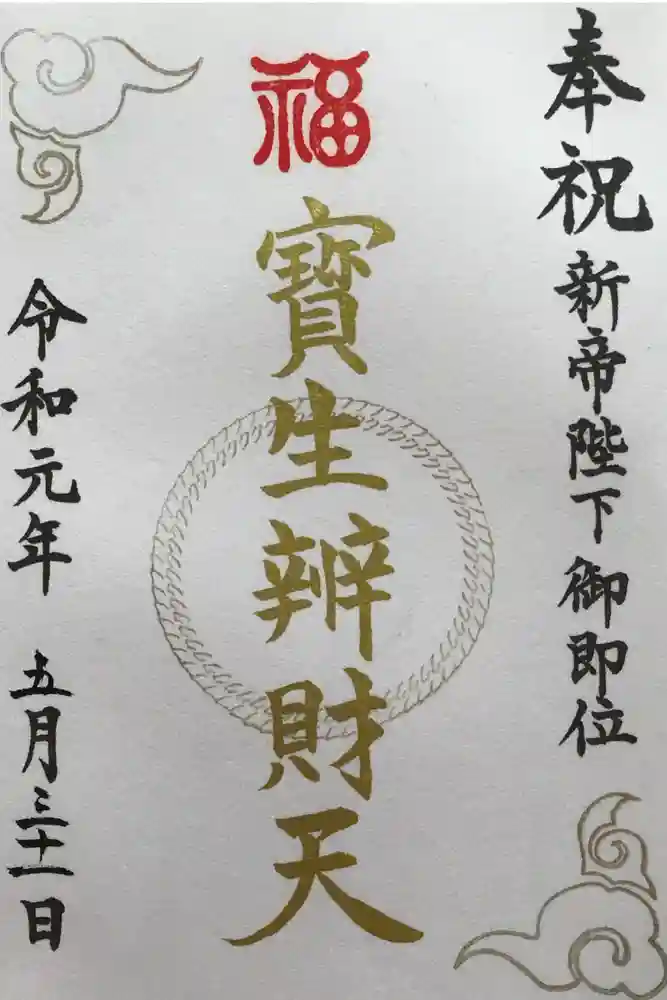 奉祝 新帝陛下 御即位
福
寳生辨財天
令和元年 五月三十一日